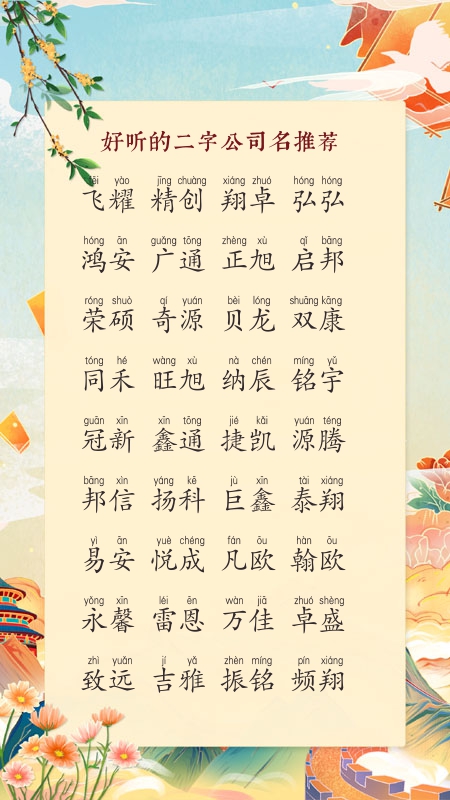 好听的二字公司名推荐
fēi yào jīng chuàng xiáng zhuó hóng hóng
飞耀 精创 翔卓 弘弘
hóng ān guǎng tōng zhèng xù qǐ bāng
鸿安 广通 正旭 启邦
róng shuò qí yuán bèi lóng shuāng kāng
荣硕 奇源 贝龙 双康
tóng hé wàng xù nà chén míng yǔ
同禾 旺旭 纳辰 铭宇
guān xīn xīn tōng jié kǎi yuán téng
冠新 鑫通 捷凯 源腾
bāng xìn yáng kē jù xīn tài xiáng
邦信 扬科 巨鑫 泰翔
yì ān yuè chéng fán ōu hàn ōu
易安 悦成 凡欧 翰欧
yǒng xīn léi ēn wàn jiā zhuó shèng
永馨 雷恩 万佳 卓盛
zhì yuǎn jí yǎ zhèn míng pín xiáng
致远 吉雅 振铭 频翔